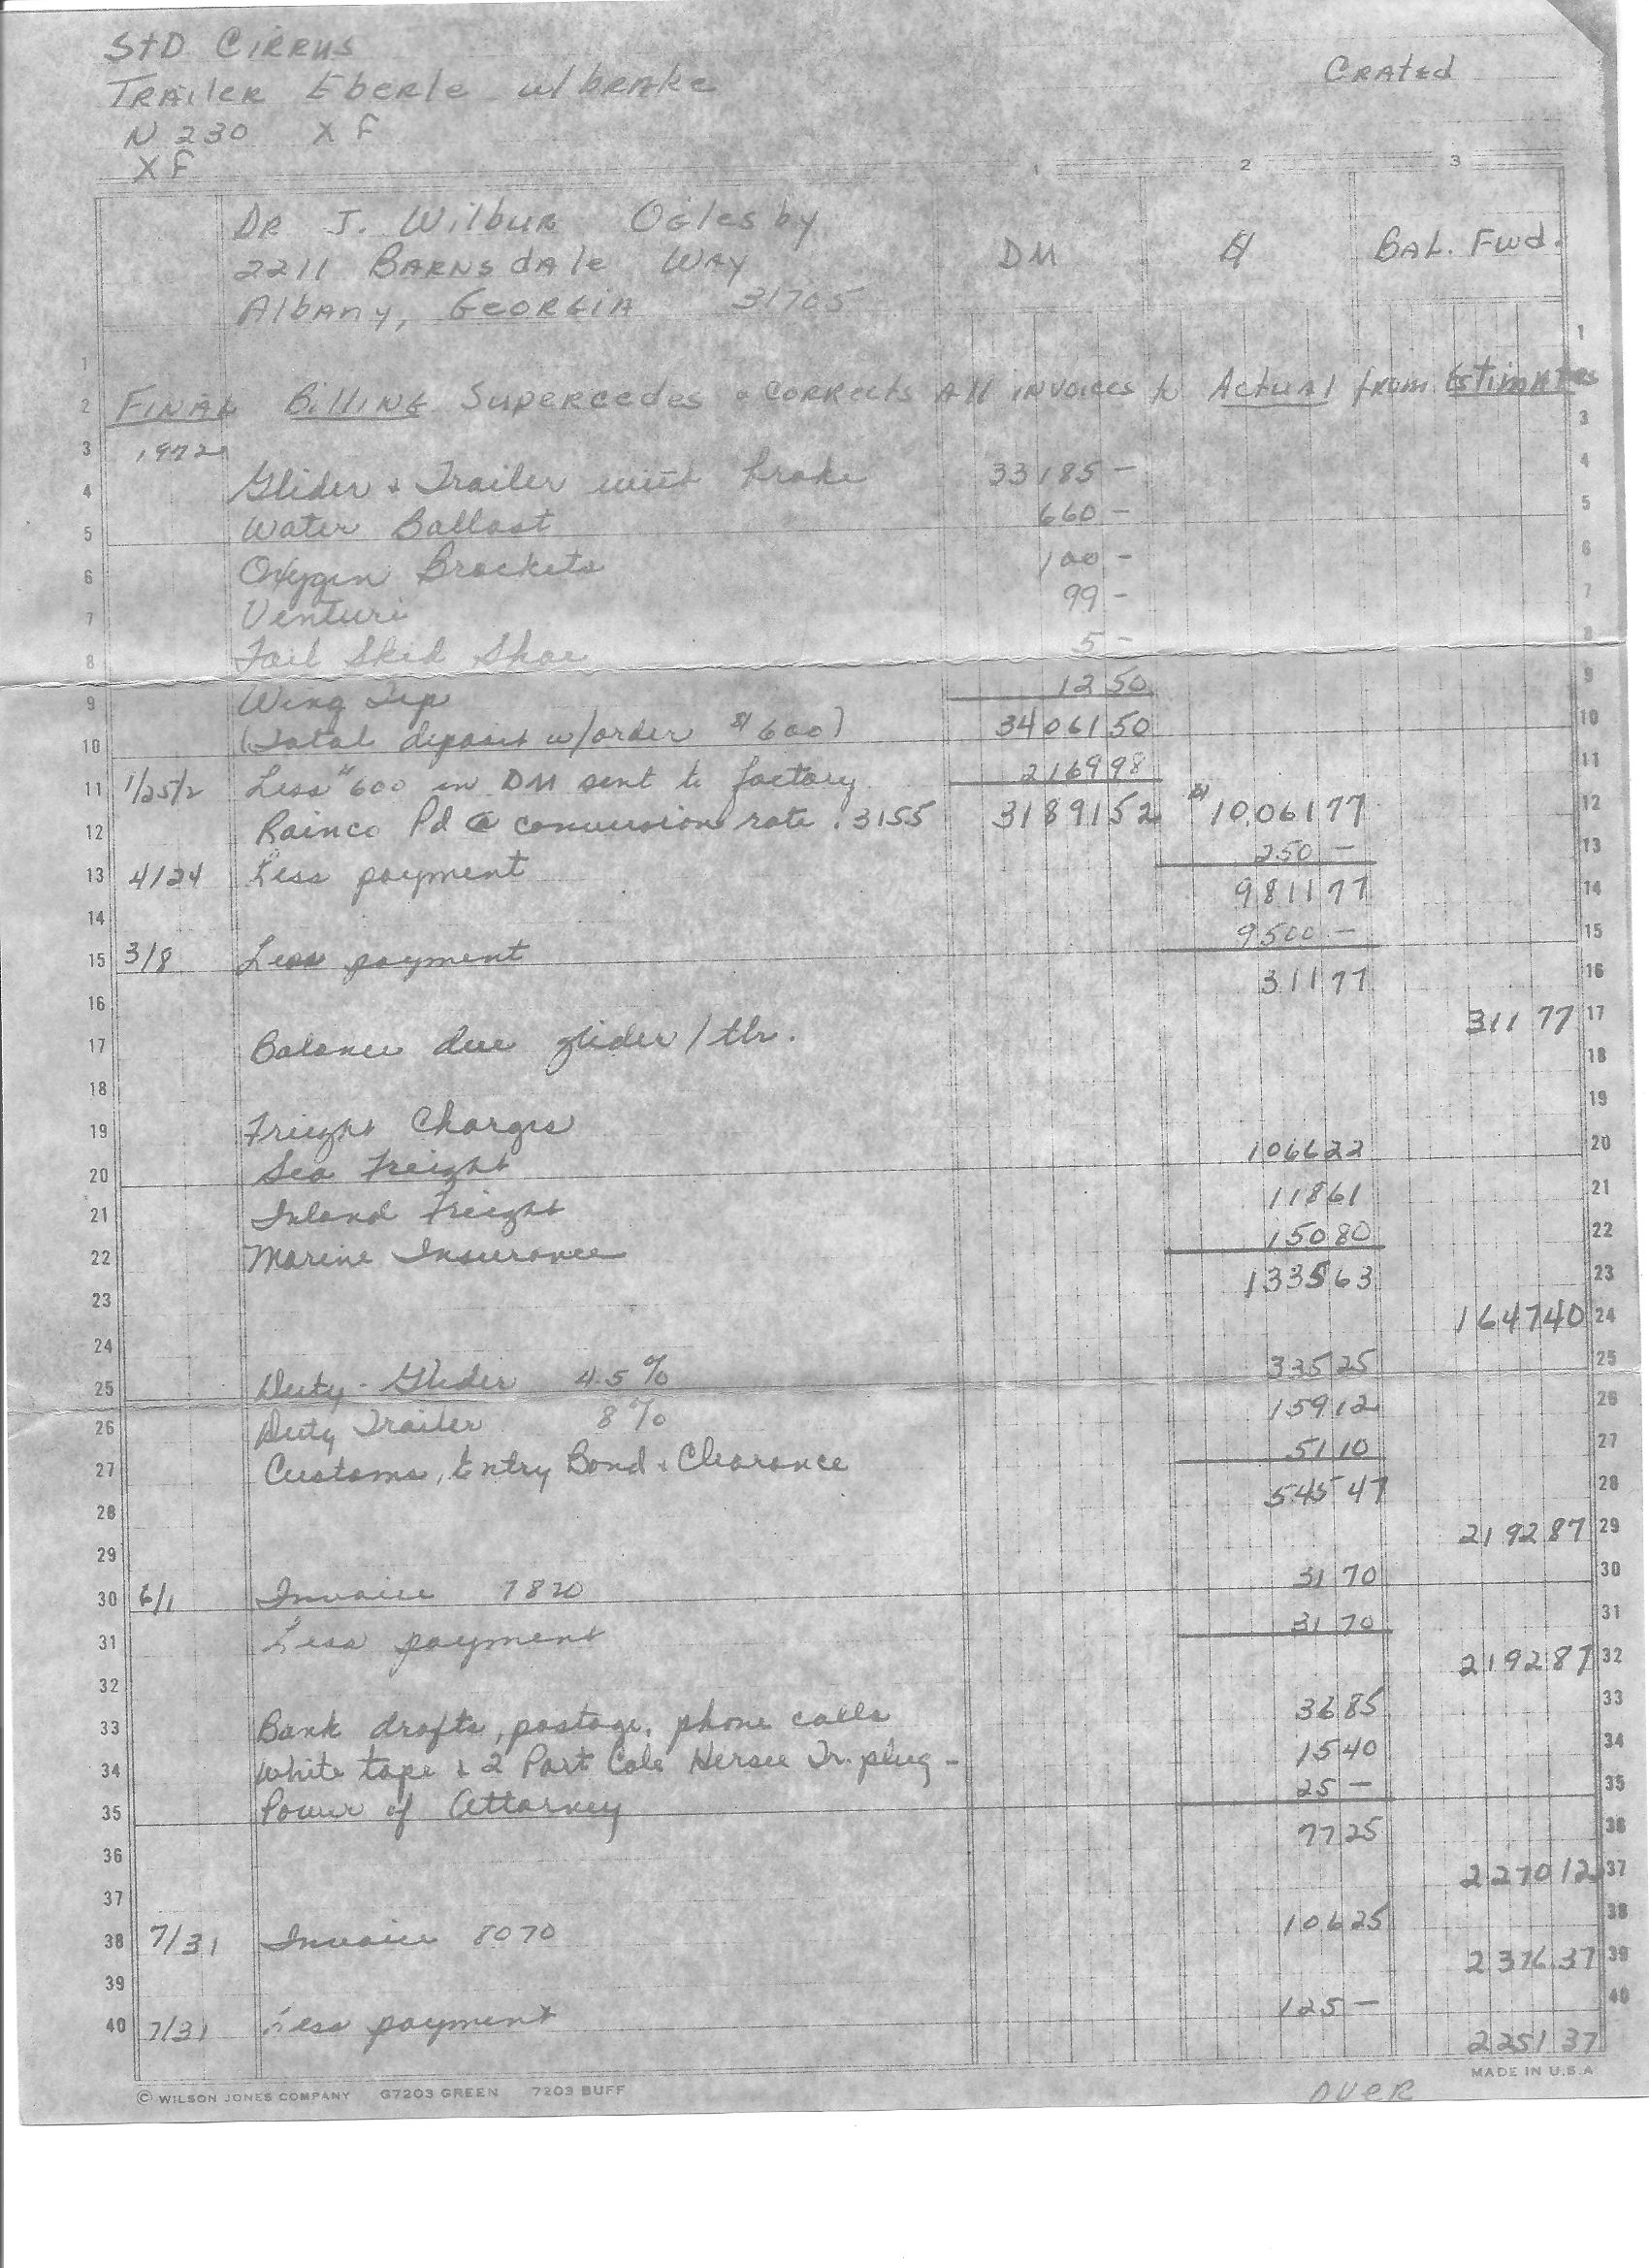 STD CIRRUS
TRAILER Eberle w/ brake Crated
N 230 XF
XF
1 2 3
DR J. Wilbur Oglesby
2211 BARNSdAle WAY DM $ BAL. Fwd.
Albany, GEORGIA 31705
1 1
2 FINAL BILLING Supercedes & corrects All invoices to Actual from Estimates
3 1972 3
4 Glider & Trailer with brake 33185 — 4
5 Water Ballast 660 — 5
6 Oxygen Brackets 100 — 6
7 Venturi 99 — 7
8 Tail Skid Shoe 5 — 8
9 Wing Tip 12 50 9
10 (Total deposit w/order $600) 34061 50 10
11 1/25/2 Less $600 in DM sent to factory 2169 98 11
12 Rainco Pd @ conversion rate .3155 31891 52 $10,061 77 12
13 4/24 Less payment 250 — 13
14 9811 77 14
15 3/8 Less payment 9500 — 15
16 311 77 16
17 Balance due glider/tlr. 311 77 17
18 18
19 Freight Charges 19
20 Sea Freight 1066 22 20
21 Inland Freight 118 61 21
22 Marine Insurance 150 80 22
23 1335 63 23
24 1647 40 24
25 Duty - Glider 4.5% 335 25 25
26 Duty Trailer 8% 159 12 26
27 Customs, Entry Bond & Clearance 51 10 27
28 545 47 28
29 2192 87 29
30 6/1 Invoice 7820 31 70 30
31 Less payment 31 70 31
32 2192 87 32
33 Bank drafts, postage, phone calls 36 85 33
34 White tape & 2 Part Cole Hersee Tr. plug - 15 40 34
35 Power of Attorney 25 — 35
36 77 25 36
37 2270 12 37
38 7/31 Invoice 8070 106 25 38
39 2376.37 39
40 7/31 Less payment 125 — 40
2251 37
© WILSON JONES COMPANY G7203 GREEN 7203 BUFF MADE IN U.S.A
OVER